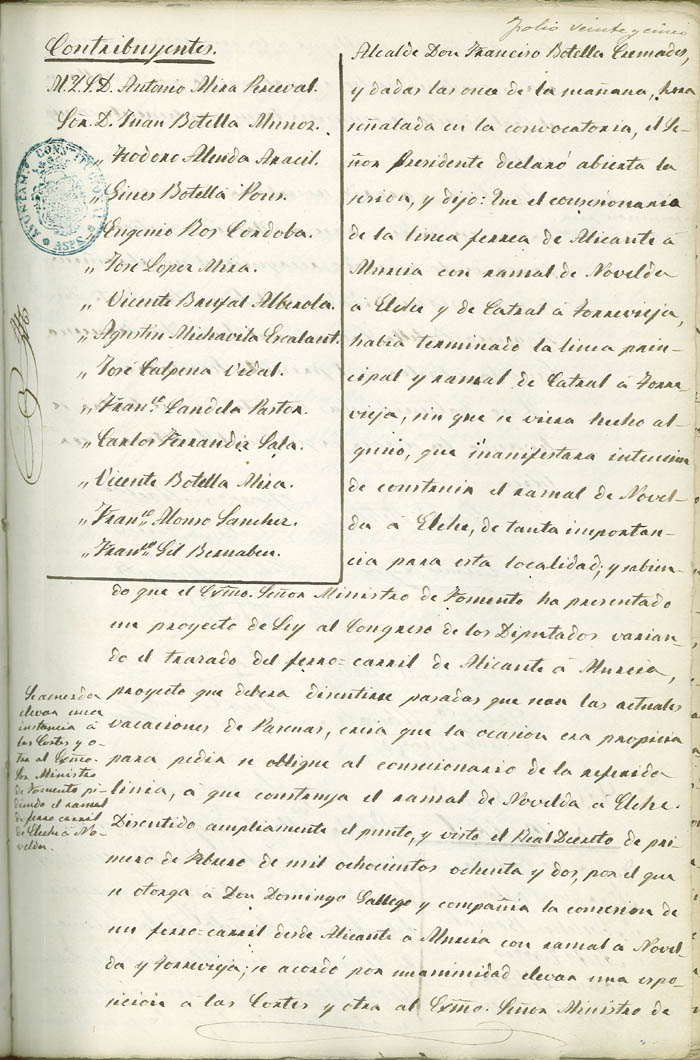 Folio veinte y cinco
Contribuyentes.
M. Y. S. D. Antonio Mira Perceval.
Sōr. D. Juan Botella Munoz.
„ Teodoro Alenda Aracil.
„ Gines Botella Pous.
„ Eugenio Ros Cordoba.
„ José Lopez Mira.
„ Vicente Brufal Alberola.
„ Agustin Michavila Escalant.
„ José Calpena Vidal.
„ Franco. Candela Pastor.
„ Carlos Ferrandiz Sala.
„ Vicente Botella Mira.
„ Franco. Alonso Sanchez.
„ Franco. Gil Bernabeu.
AYUNTAMº CONSTITUCIONAL
ASPE
Alcalde Don Francisco Botella Cremades,
y dadas las once de la mañana, hora
señalada en la convocatoria, el Se-
ñor Presidente declaró abierta la
sesion, y dijo: Que el concesionario
de la linea ferrea de Alicante á
Murcia con ramal de Novelda
a Elche y de Catral á Torrevieja,
habia terminado la linea prin-
cipal y ramal de Catral á Torre
vieja, sin que se viera hecho al-
guno, que manifestara intencion
de construir el ramal de Novel-
da á Elche, de tanta importan-
cia para esta localidad; y sabien-
do que el Exmo. Señor Ministro de Fomento ha presentado
un proyecto de Ley al Congreso de los Diputados varian-
do el trazado del ferro-carril de Alicante á Murcia,
proyecto que debera discutirse pasadas que sean las actuales
vacaciones de Pascuas, creia que la ocasion era propicia
para pedir se obligue al concesionario de la referida
linia, á que construya el ramal de Novelda á Elche.
Discutido ampliamente el punto, y visto el Real Decreto de pri-
mero de Febrero de mil ochocientos ochenta y dos, por el que
se otorga á Don Domingo Gallego y compañia la concesion de
un ferro-carril desde Alicante á Murcia con ramal á Novel-
da y Torrevieja; se acordó por unanimidad elevar una espo-
sicion á las Cortes y otra al Exmo. Señor Ministro de
Se acuerda
elevar una
instancia á
las Cortes y o-
tra al Exmo.
Sor. Ministro
de Fomento pi-
diendo el ramal
de ferro carril
de Elche á No-
velda.